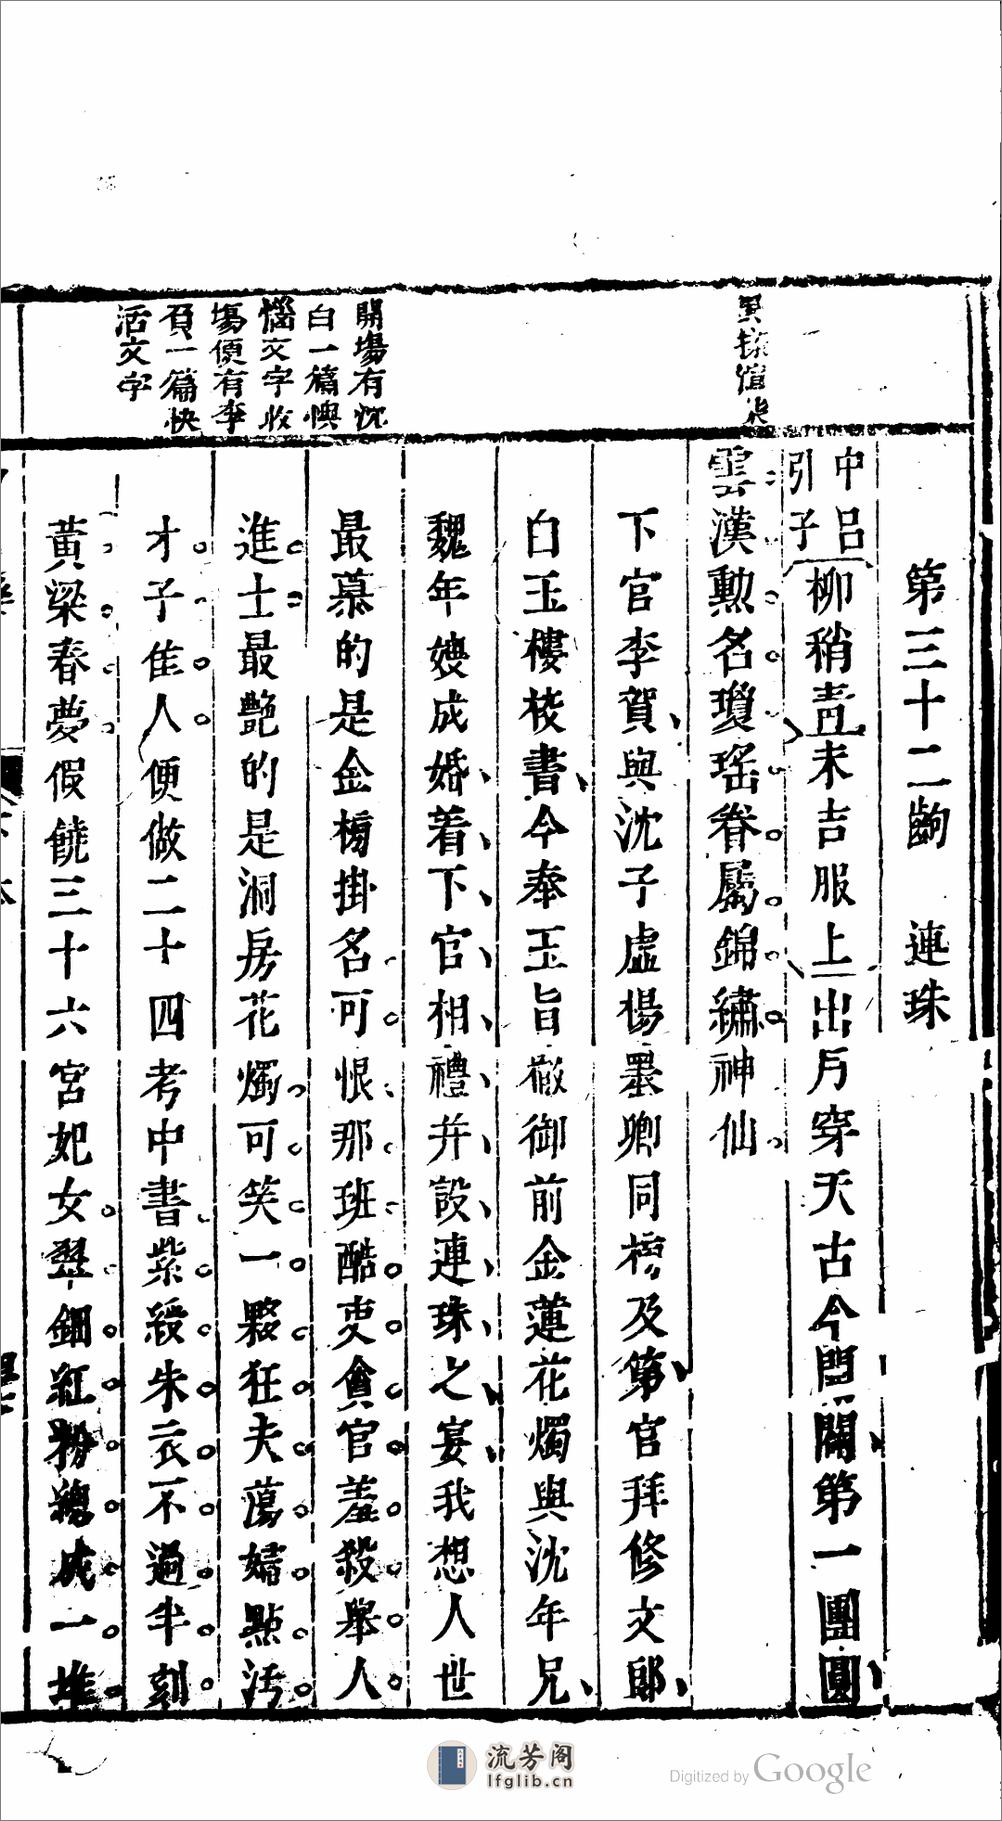 第三十二齣　連珠
中呂引子
柳稍青
末吉服上
出月穿天古今門闢第一團圓
雲漢勲名瓊瑤眷屬錦繡神仙
下官李賀與沈子虛楊墨卿同榜及第官拜修文郎
白玉樓校書今奉玉旨撤御前金蓮花燭與沈年兄
魏年嫂成婚着下官相禮并設連珠之宴我想人世
最慕的是金榜掛名可恨那班酷吏貪官羞殺舉人
進士最艷的是洞房花燭可笑一夥狂夫蕩婦點污
才子佳人便做二十四考中書紫綬朱衣不過半刻
黃粱春夢假饒三十六宮妃女翠鈿紅粉總成一堆
開塲有沈
白一篇懊
惱文字收
塲便有李
賀一篇快
活文字
流芳阁
lfglib.cn
Digitized by Google